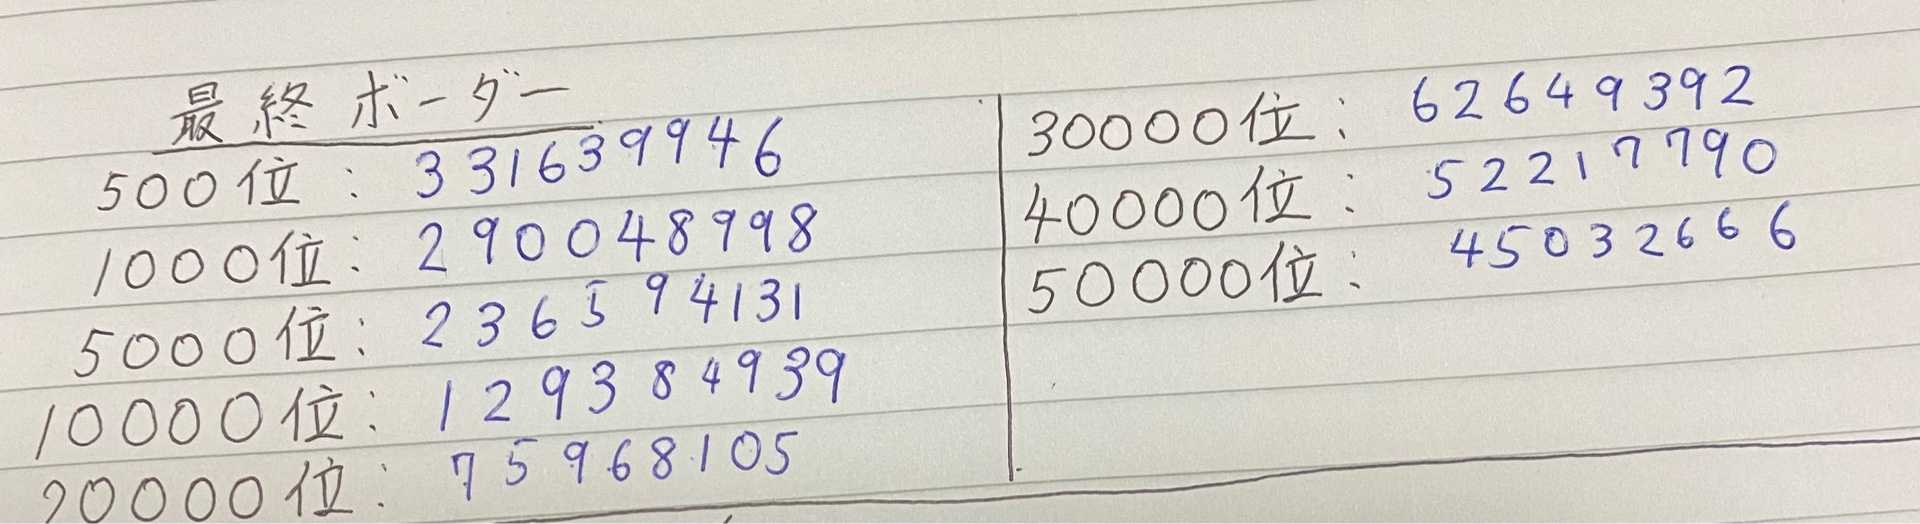 最終ボーダー
500位：331639946
1000位：290048998
5000位：236594131
10000位：129384939
20000位：75968105
30000位：62649392
40000位：52217790
50000位：45032666